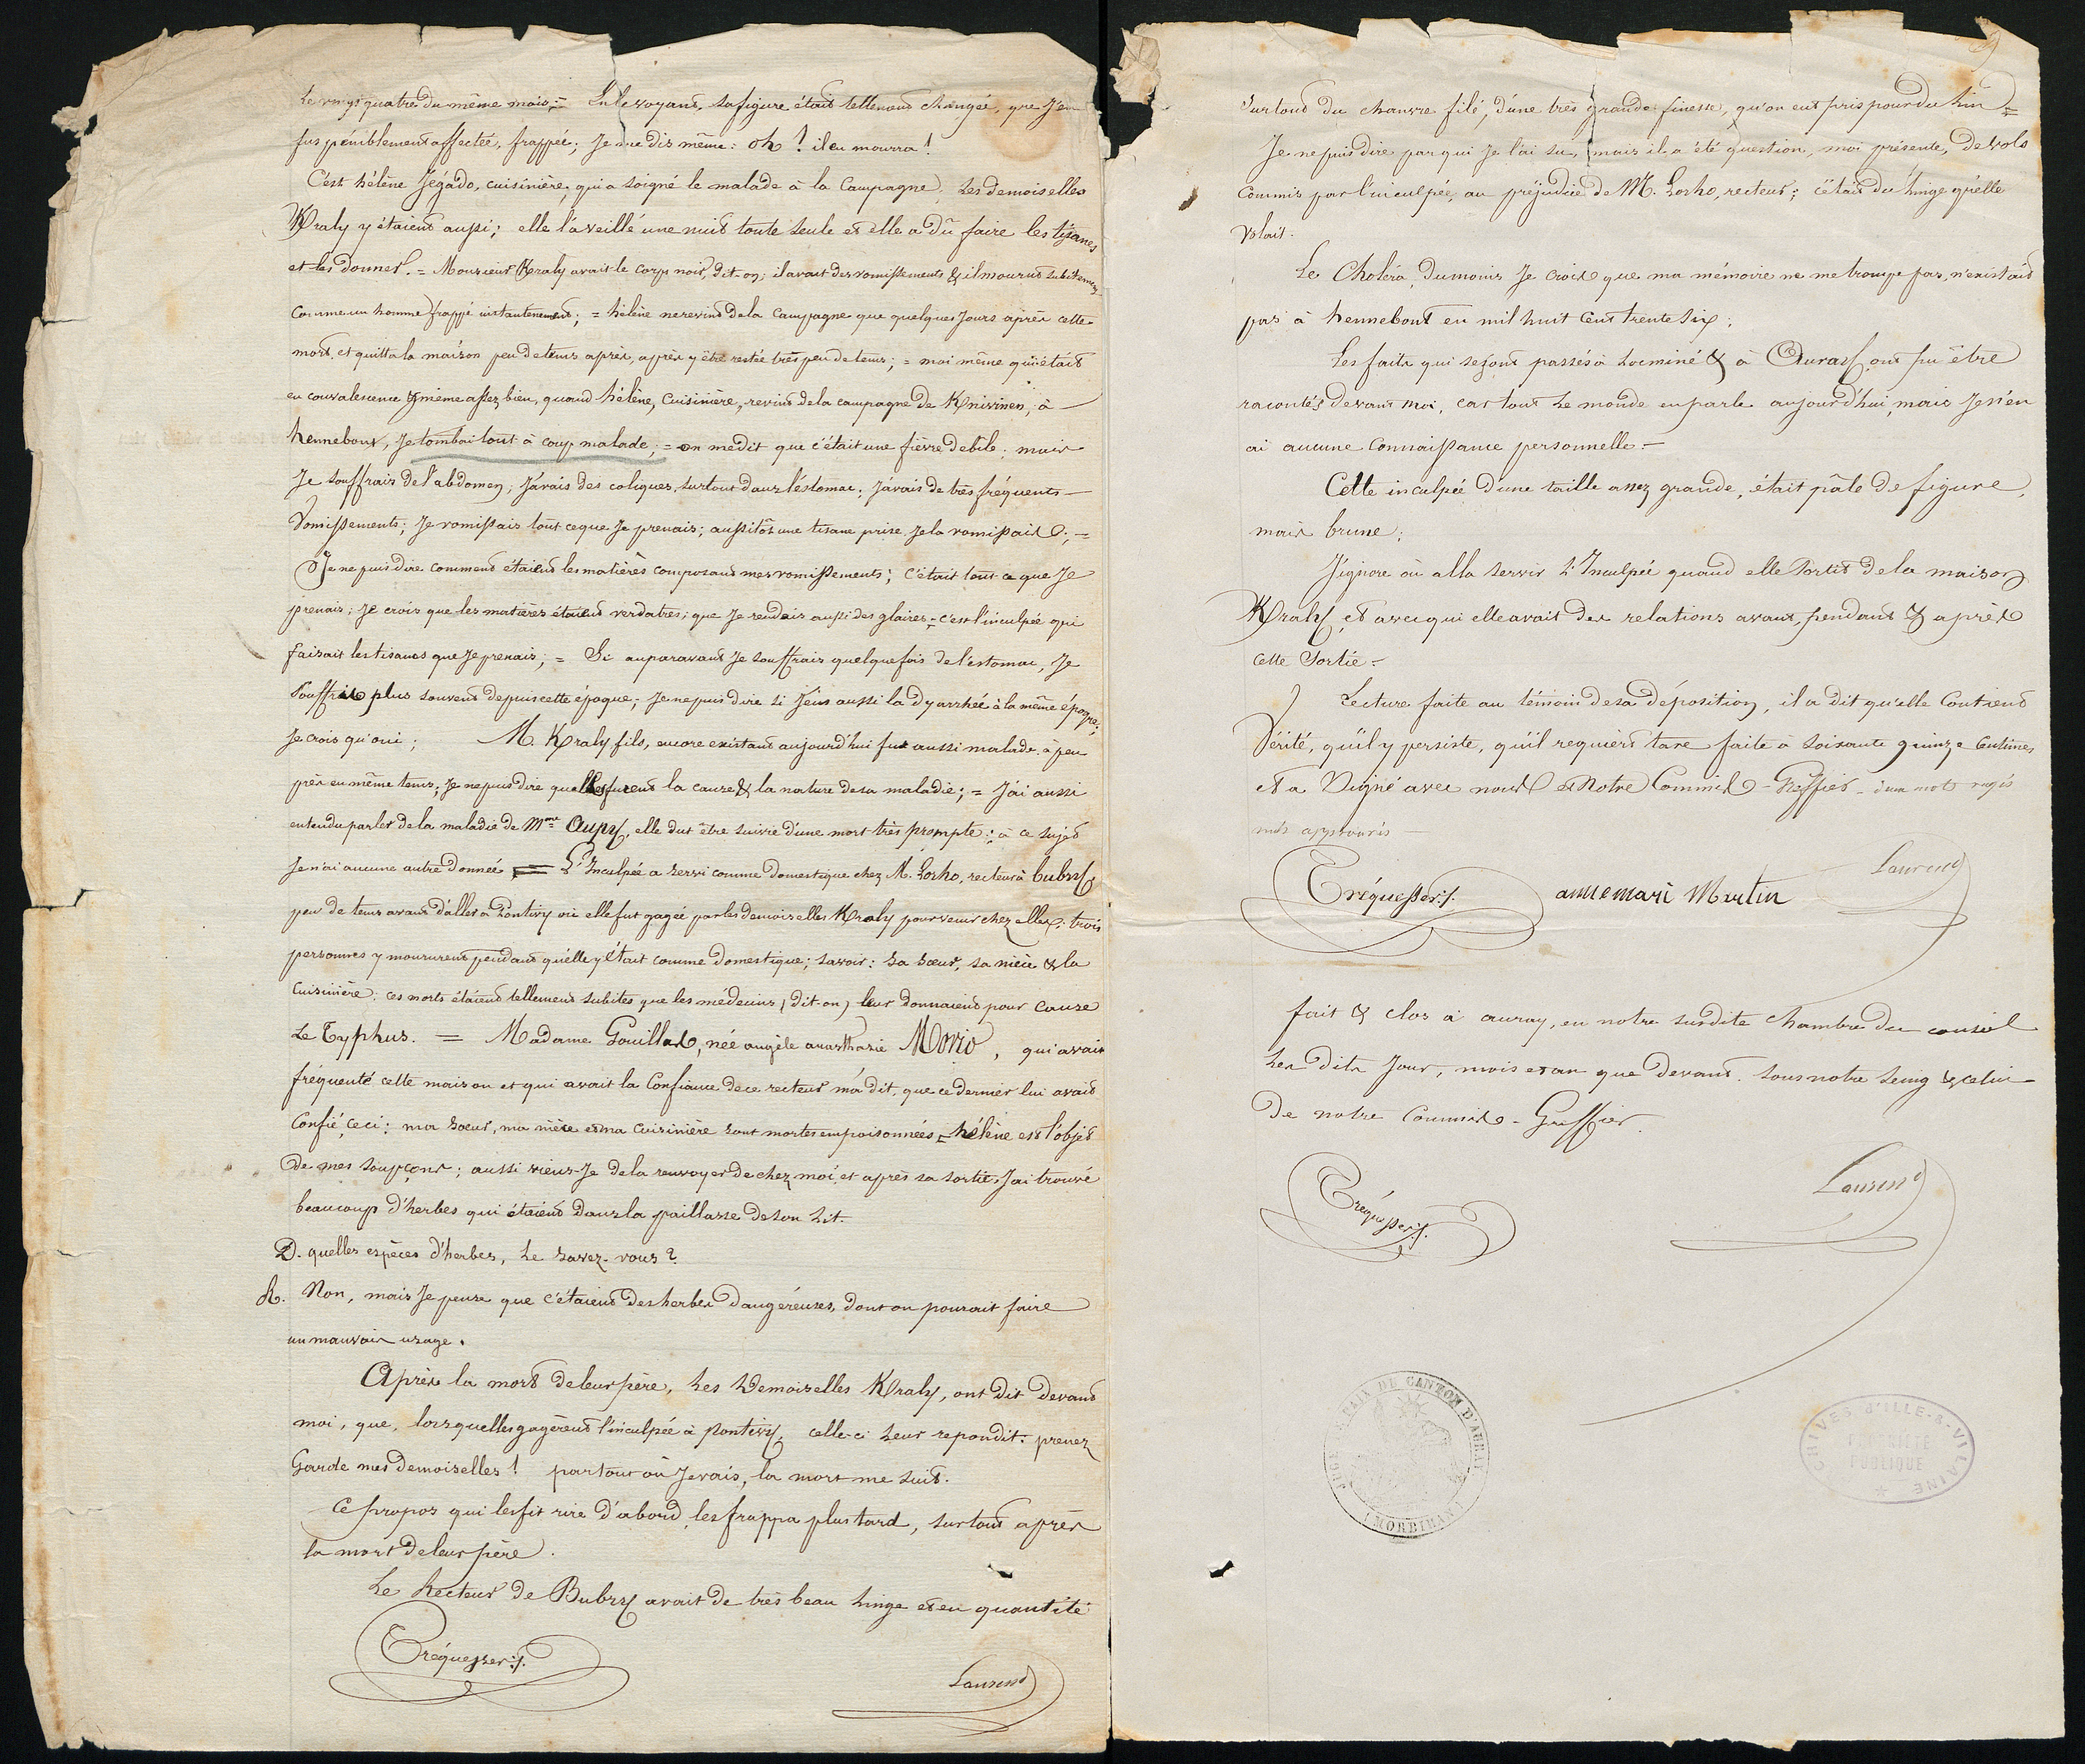 Le vingt quatre du même mois; = En le voyant, sa figure était tellement changée, que J'en
fus péniblement affectée, frappée; Je me dis même: oh! il en mourra!
C'est hélène Jégado, cuisinière, qui a soigné le malade à la Campagne; Les demoiselles
Kraly y étaient aussi; elle l'a veillé une nuit toute seule et elle a dû faire les tisanes
et les donner. = Monsieur Kraly avait le corps noir, dit-on; il avait des vomissements & il mourut subitement
comme un homme frappé instantenément; = hélène ne revint de la Campagne que quelques Jours après cette
mort, et quitta la maison peu de tems après, après y être restée très peu de tems; = moi même qui étais
en convalescence & même assez bien, quand hélène, Cuisinière, revint de la campagne de Knivinen, à
hennebont, Je tombai tout à coup malade; = on me dit que c'était une fièvre de bile; mais
Je souffrais de l'abdomen; J'avais des coliques, surtout dans l'éstomac; J'avais de très fréquents
Vomissements; Je vomissais tout ce que Je prenais; aussitôt une tisane prise Je la vomissais; =
Je ne puis dire comment étaient les matières composant mes vomissements; C'était tout ce que Je
prenais; Je crois que les matières étaient verdatres; que Je rendais aussi des glaires = c'est l'inculpée qui
faisait les tisanes que Je prenais; = Si auparavant Je souffrais quelquefois de l'estomac, Je
Souffris plus souvent depuis cette époque; Je ne puis dire si J'eus aussi la dyarrhée à la même époque;
Je crois qu'oui; M. Kraly fils, encore existant aujourd'hui fut aussi malade à peu
près en même tems; Je ne puis dire quelles furent la cause & la nature de sa maladie; = J'ai aussi
entendu parler de la maladie de Mme Aupy, elle dut être suivie d'une mort très prompte: à ce sujet
Je n'ai aucune autre donnée = L'Inculpée a servi comme domestique chez M. Lorho, recteur à bubry
peu de tems avant d'aller à Pontivy où elle fut gagée par les demoiselles Kraly pour venir chez elles: trois
personnes y moururent pendant qu'élle y était comme domestique; savoir: Sa Soeur, sa nièce & la
Cuisinière: ces morts étaient tellement subites que les médecins (dit-on) leur donnaient pour cause
Le Typhus. = Madame Gouillard, née angèle anasthasie Morio, qui avait
fréquenté cette maison et qui avait la Confiance de ce recteur m'a dit, que ce dernier lui avait
Confié ceci: ma soeur, ma nièce et ma cuisinière sont mortes empoisonnées = hélène est l'objet
de mes soupçons; aussi viens-Je de la renvoyer de chez moi, et après sa sortie J'ai trouvé
beaucoup d'herbes qui étaient dans la paillasse de son Lit.
D. quelles espèces d'herbes, Le savez-vous?
R. Non, mais Je pense que c'étaient des herbes dangéreuses, dont on pouvait faire
un mauvais usage.
Après la mort de leur père, Les Demoiselles Kraly, ont dit devant
moi, que, lorsquelles gagèrent l'inculpée à Pontivy, celle-ci leur repondit: prenez
Garde mes demoiselles! partout où Je vais, la mort me suit.
Ce propos qui les fit rire d'abord, les frappa plus tard, surtout après
la mort de leur père.
Le Recteur de Bubry avait de très beau Linge et en quantité
Tréquesser :/.
Laurent
Surtout du chanvre filé, d'une très grande finesse, qu'on eut pris pour du Lin =
Je ne puis dire par qui Je l'ai su, mais il a été question, moi présente, de vols
commis par l'inculpée, au préjudice de M. Lorho, recteur; c'était du Linge qu'elle
Volait.
Le Choléra, du moins Je crois que ma mémoire ne me trompe pas, n'existait
pas à hennebont en mil huit Cent trente six;
Les faits qui se sont passés à Locminé & à Auray, ont pu être
racontés devant moi, car tout Le monde en parle aujourd'hui, mais Je n'en
ai aucune Connaissance personnelle. =
Cette inculpée d'une taille assez grande, était pâle de figure,
mais brune;
J'ignore où alla servir L'Inculpée quand elle Sortit de la maison
Kraly, et avec qui elle avait des relations avant, pendant & après
cette Sortie. =
Lecture faite au témoin de sa déposition, il a dit qu'elle Contient
Vérité, qu'il y persiste, qu'il requiert taxe faite à soixante quinze Centimes
et a Signé avec nous et Notre Commis-Greffier - deux mots rayés
nuls approuvés
Tréquesser :/. annemari Martin Laurent
fait & clos à auray, en notre susdite chambre du conseil
Les dits Jour, mois et an que devant. sous notre Seing & celui
De notre Commis-Greffier.
Tréquesser :/. Laurent
JUGE DE PAIX DU CANTON D'AURAY
(MORBIHAN)
ARCHIVES D'ILLE-&-VILAINE
PROPRIÉTÉ
PUBLIQUE